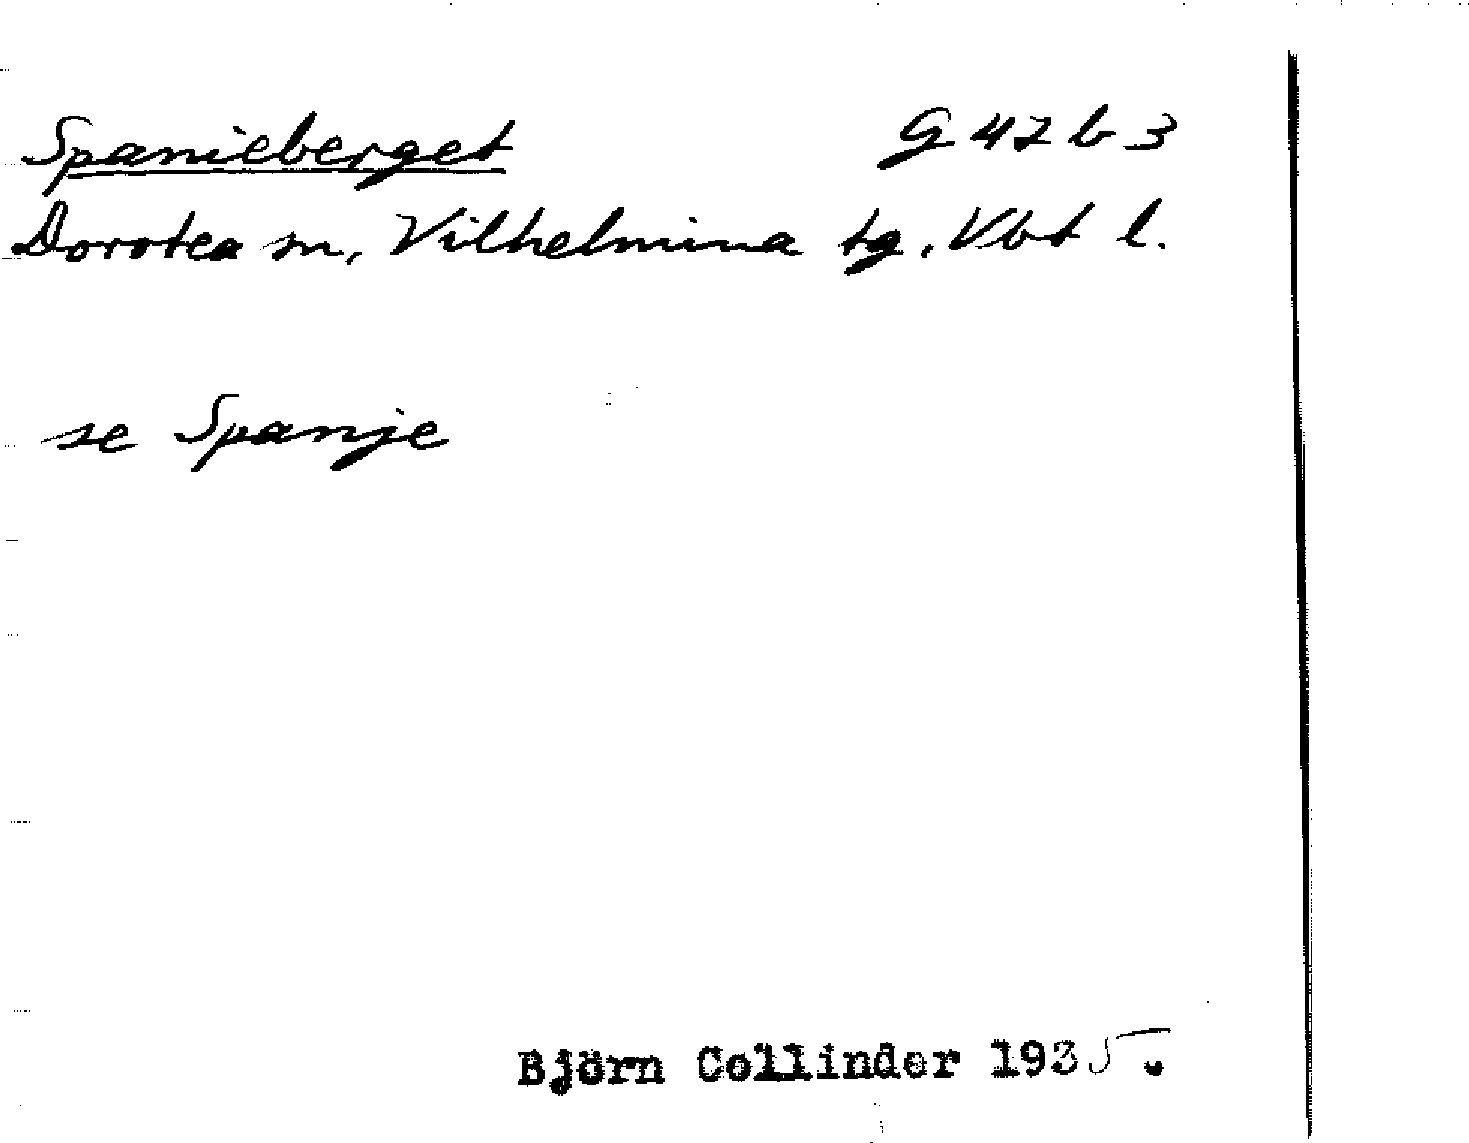 Spanieberget G 42 b 3
Dorotea sn, Vilhelmina tg, Vbt l.
se Spanje
Björn Collinder 1935.